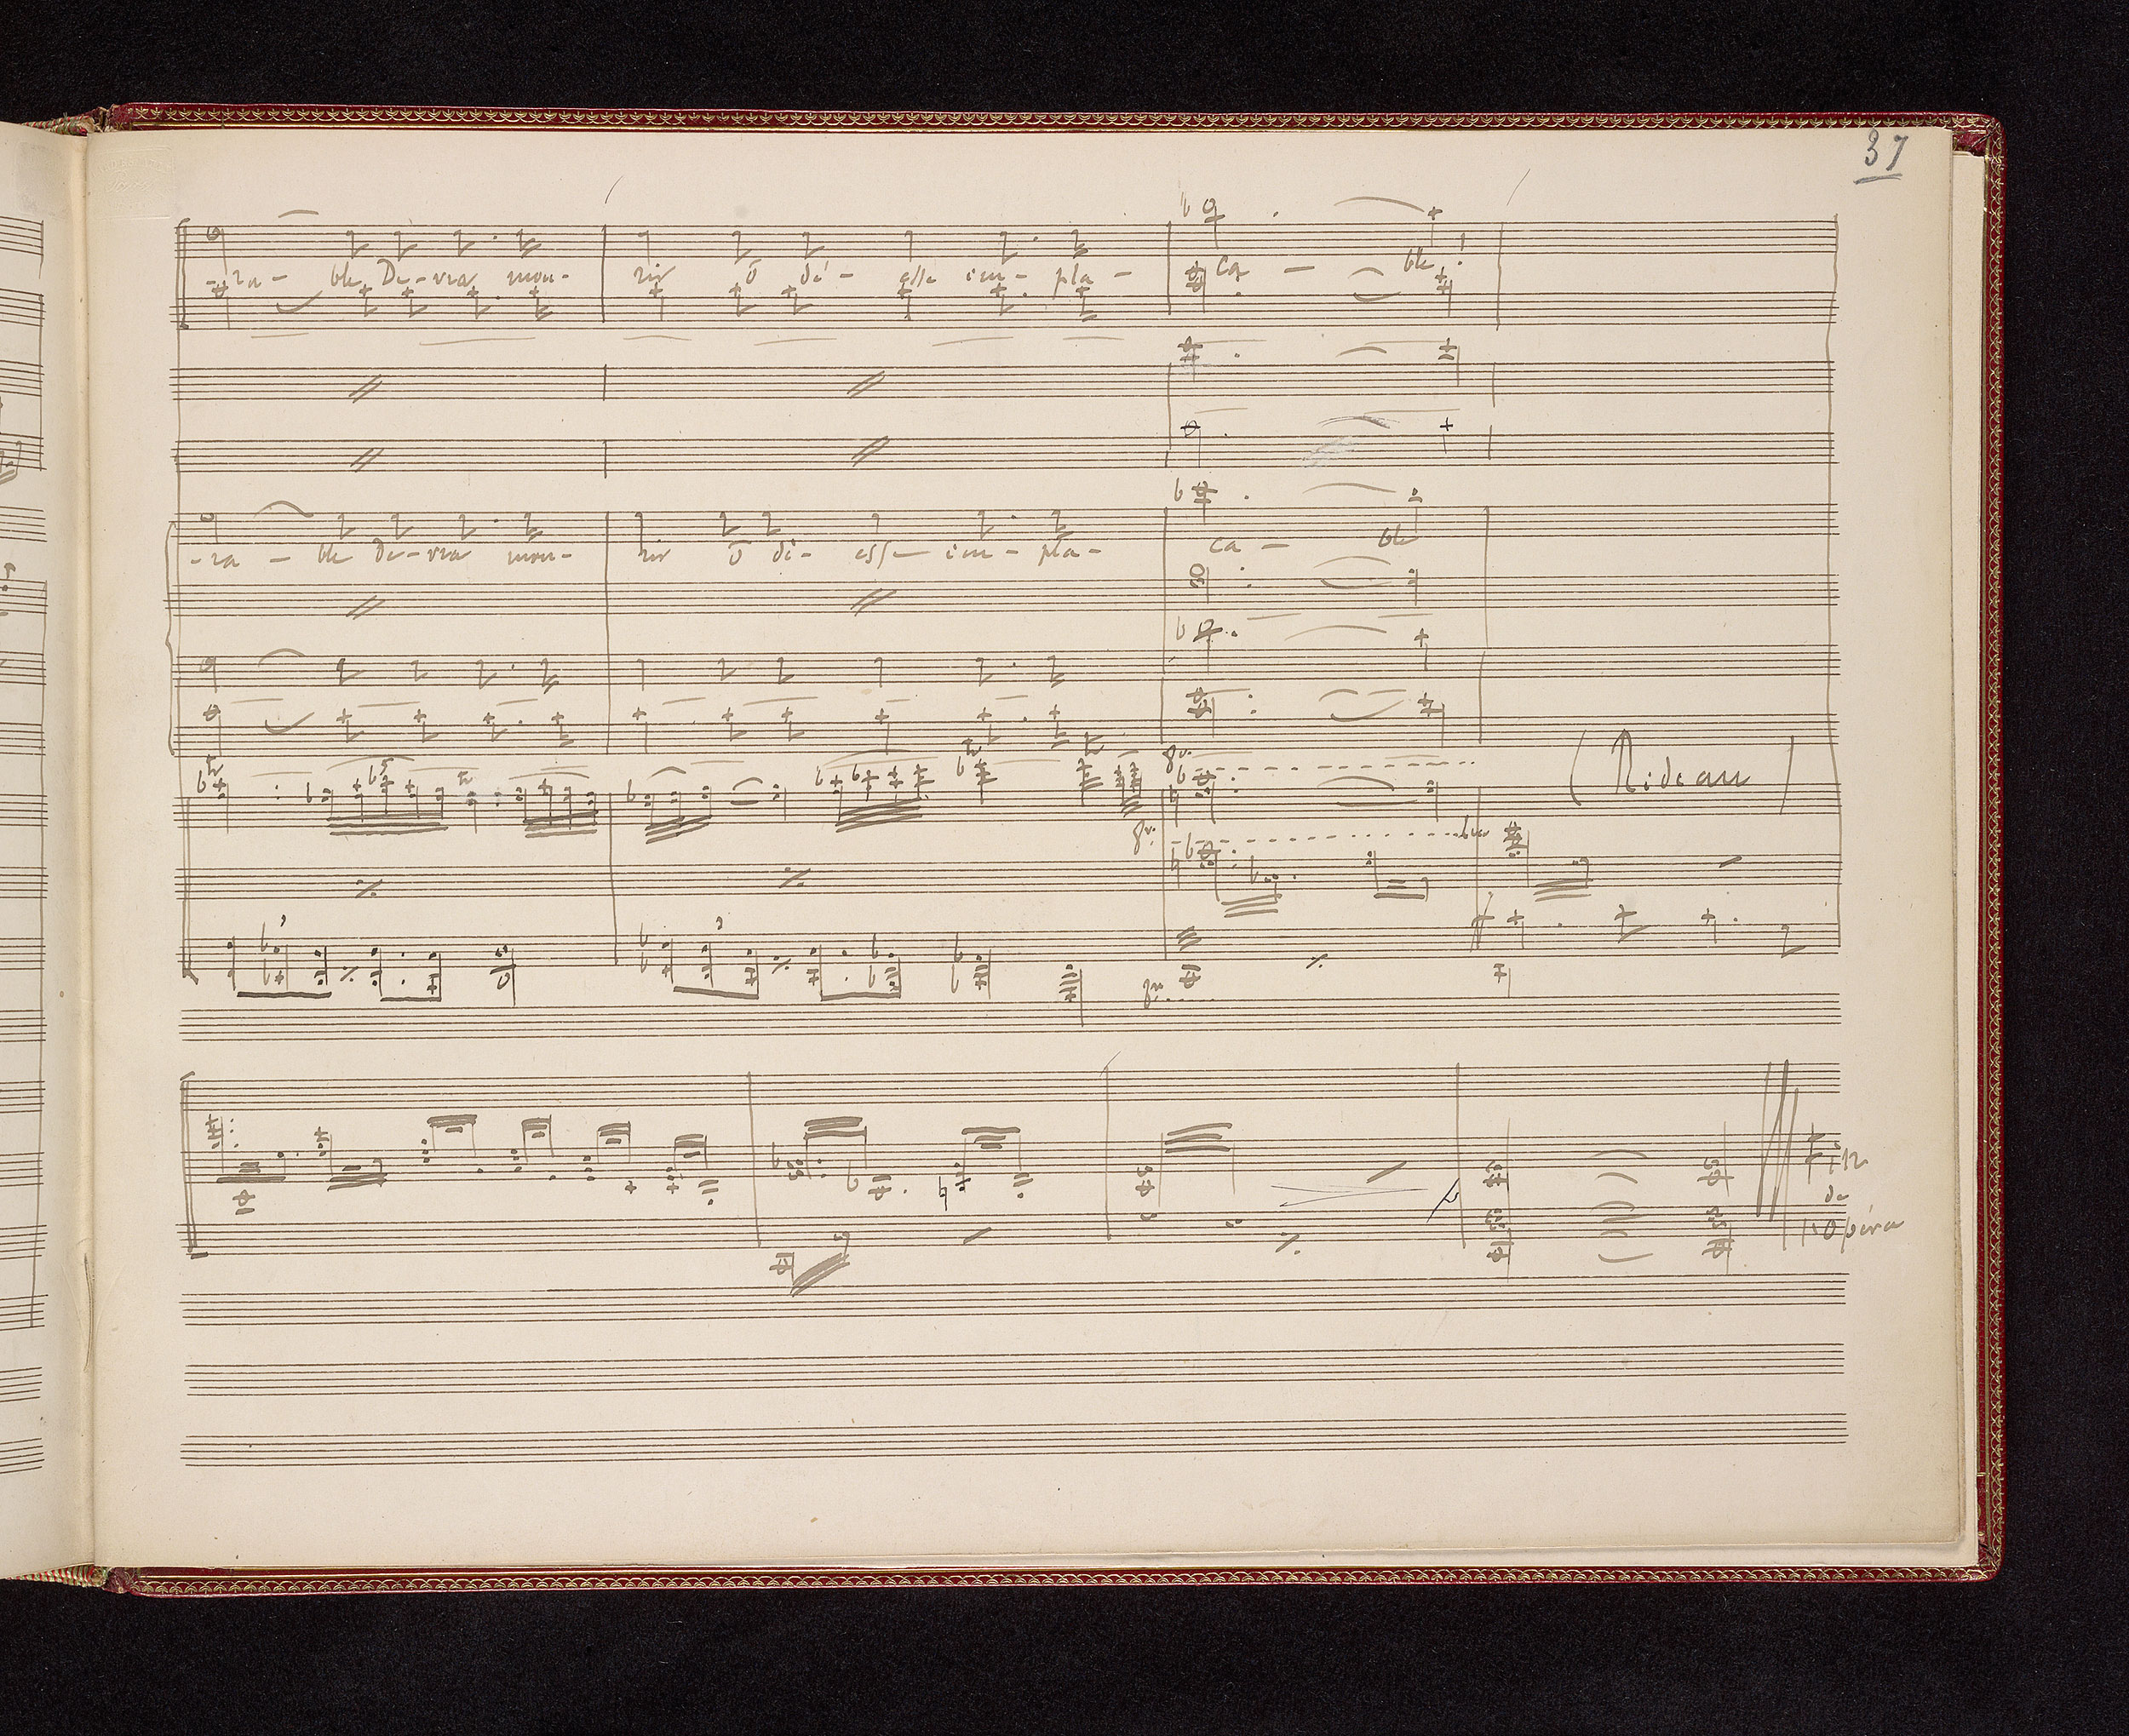 37
-ra- ble De-vra mou- rir ô dé- esse im- pla- ca - ble!
-ra - ble De-vra mou- rir ô dé- esse im- pla- ca - ble
8va
(Rideau)
8va
8va
fin
de
l'Opéra